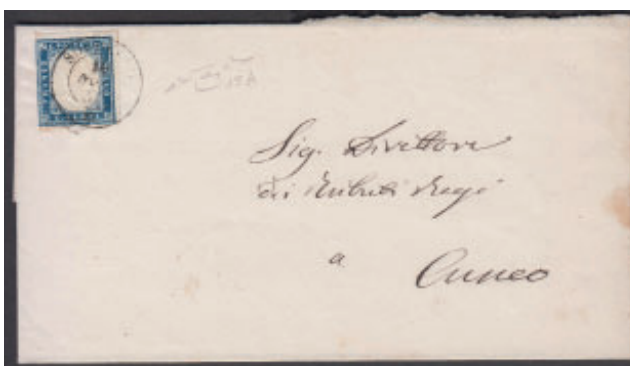 Sig. Direttore
dei Tributi Regi
a
Cuneo